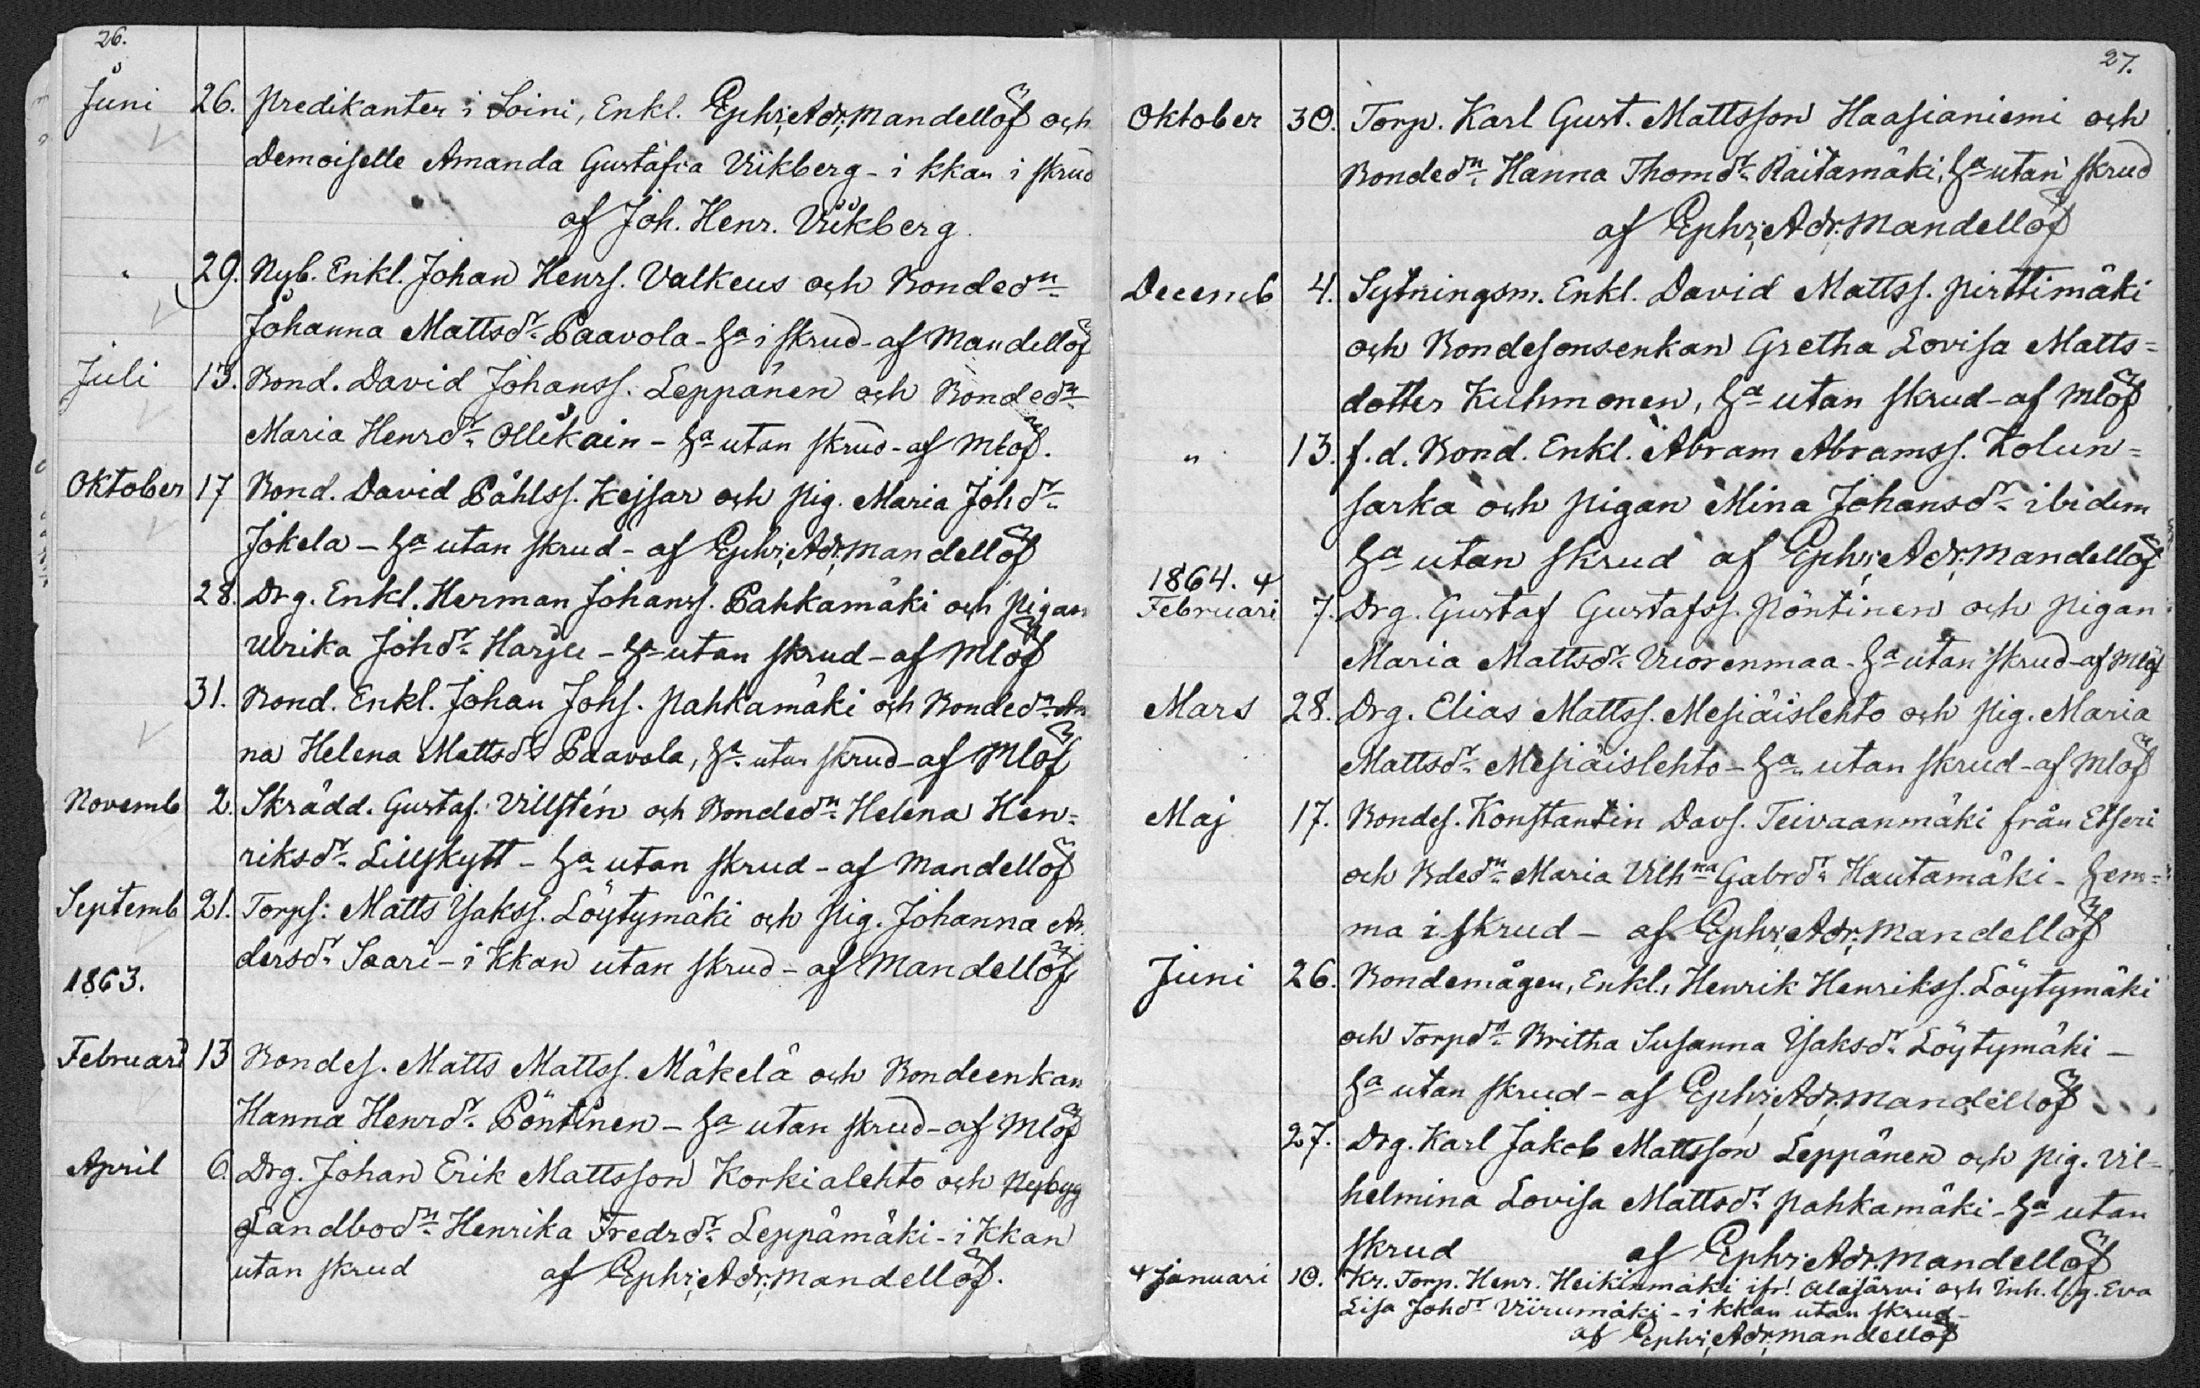 26.
Juni 26. Predikanten i Soini, Enkl. Ephr; Adr; Mandellöf och
Demoiselle Amanda Gustafva Viikberg - i kkan i skrud
af Joh. Henr. Viikberg
" 29. Nyb. Enkl. Johan Henrs. Valkeus och Bondedn
Johanna Mattsdr Paavola - ha i skrud - af Mandellöf
Juli 13. Bond. David Johanss. Leppänen och Bondedn
Maria Henrdr Ollikain - ha utan skrud - af Mlöf.
Oktober 17 Bond. David Påhlss. Kejsar och pig. Maria Johdr
Jokela - ha utan skrud - af Ephr; Adr; Mandellöf
28. Drg. Enkl. Herman Johanss. Pahkamäki och pigan
Ulrika Johdr Harju - ha utan skrud - af Mlöf
31. Bond. Enkl. Johan Johs. Pahkamäki och Bondedn An
na Helena Mattsdr Paavola, ha utan skrud - af Mlöf
Novemb 2. Skrädd. Gustaf Villstén och Bondedn Helena Hen=
riksdr Lillskytt - ha utan skrud - af Mandellöf
Septemb 21. Torps: Matts Jakss. Löytymäki och pig. Johanna An
dersdr Saari - i kkan utan skrud - af Mandellöf
1863.
Februari 13 Bondes. Matts Mattss. Mäkelä och Bondeenkan
Hanna Henrdr Pöntinen - ha utan skrud - af Mlöf
April 6. Drg. Johan Erik Mattsson Korkialehto och Nybyg
Landbodn Henrika Fredrdr Leppämäki - i kkan
utan skrud af Ephr; Adr; Mandellöf.
27.
Oktober 30. Torp. Karl Gust. Mattsson Haasianiemi och
Bondedn Hanna Thomdr Raitamäki, ha utan skrud
af Ephr; Adr. Mandellöf
Decemb 4. Sytningsm. Enkl. David Mattss. Pirttimäki
och Bondesonsenkan Gretha Lovisa Matts=
dotter Kuhmonen, ha utan skrud - af Mlöf
" 13. f.d. Bond. Enkl. Abram Abramss. Kolun=
sarka och pigan Mina Johansdr ibidem
ha utan skrud af Ephr; Adr; Mandellöf
1864.
Februari 7. Drg. Gustaf Gustafss. Pöntinen och pigan
Maria Mattsdr Vuorenmaa - ha utan skrud - af Mlöf
Mars 28. Drg. Elias Mattss. Mesiäislehto och pig. Maria
Mattsdr Mesiäislehto - ha utan skrud - af Mlöf
Maj 17. Bondes. Konstantin Davs. Teivaanmäki från Etseri
och Bdedn Maria Vilhna Gabrdr Hautamäki - hem=
ma i skrud - af Ephr; Adr; Mandellöf
Juni 26. Bondemågen, Enkl., Henrik Henrikss. Löytymäki
och Torpdn Britha Susanna Jaksdr Löytymäki -
ha utan skrud - af Ephr; Adr. Mandellöf
27. Drg. Karl Jakob Mattsson Leppänen och pig. Vil=
helmina Lovisa Mattsdr Pahkamäki - ha utan
skrud af Ephr; Adr. Mandellöf
Januari 10. Kr. Torp. Henr. Heikinmäki ifr! Alajärvi och Inh. lg. Eva
Lisa Johdr Viirumäki - i kkan utan skrud -
af Ephr; Adr; Mandellöf